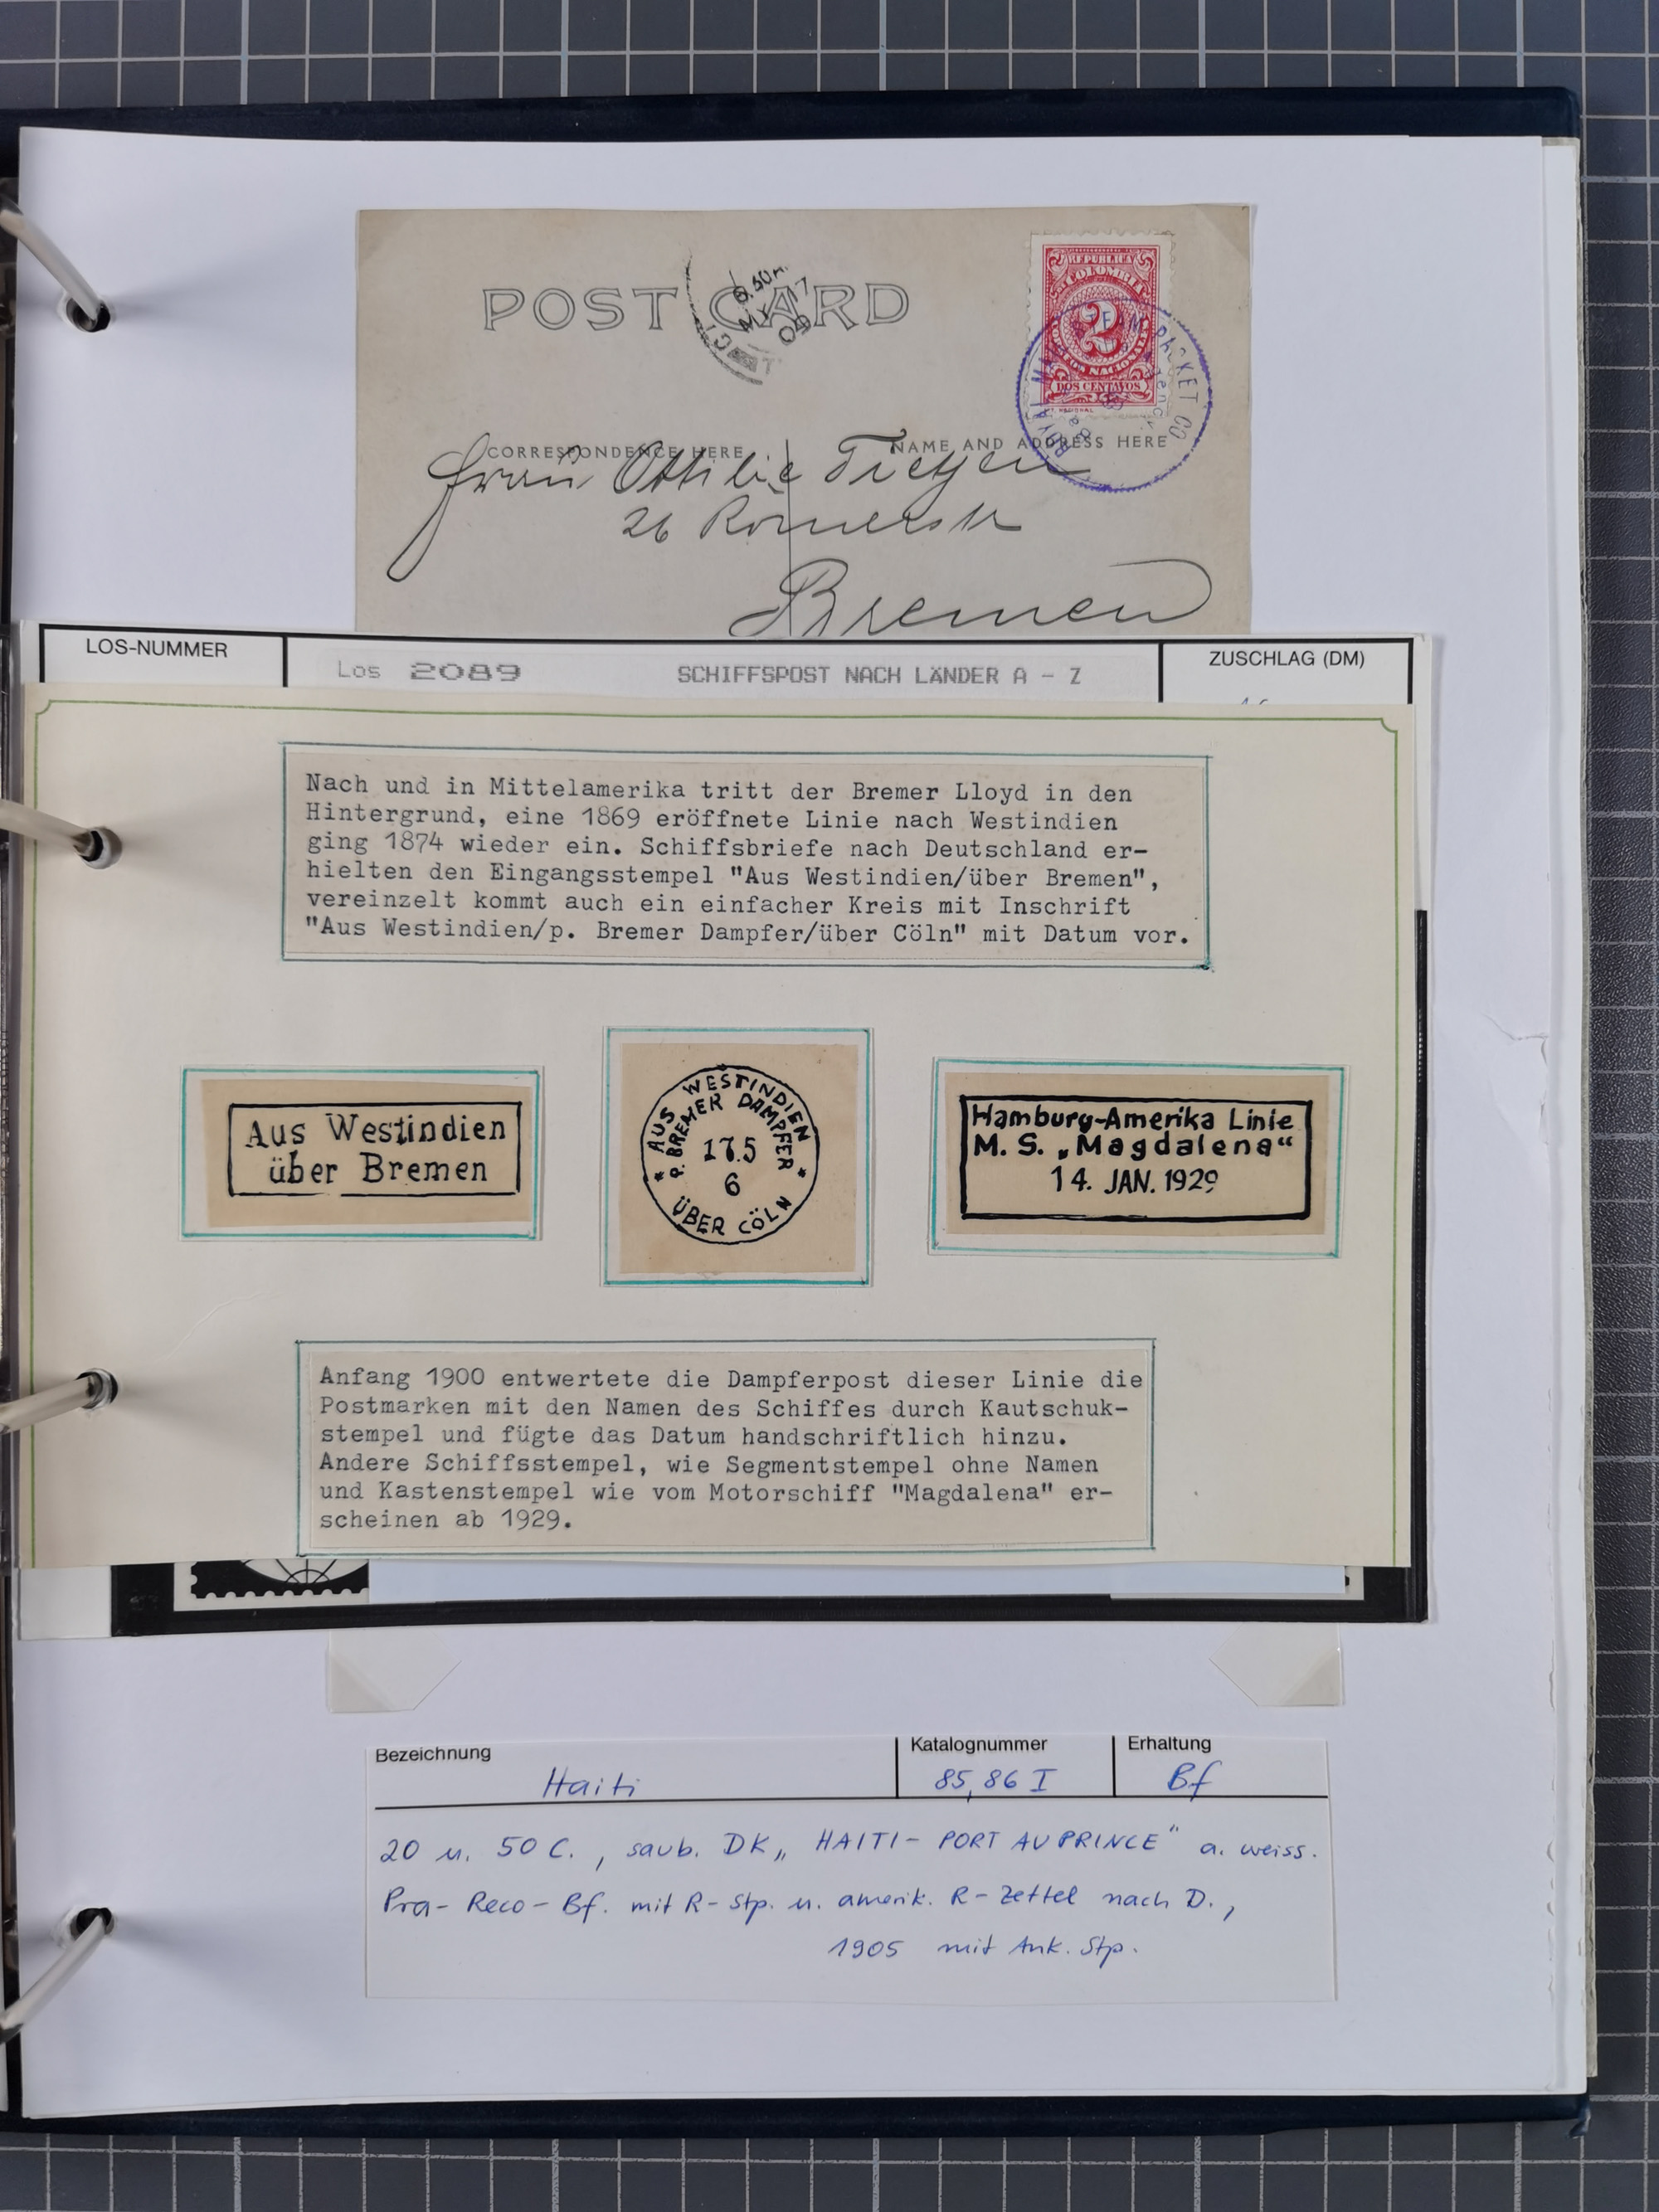 POST CARD
6.30A
MY 17
09
REPUBLICA
COLOMBIA
2
CORREOS NACIONALES
DOS CENTAVOS
ROYAL MAIL STEAM PACKET CO
Agency
CORRESPONDENCE HERE
NAME AND ADDRESS HERE
Frau Ottilie Tietjen
26 Römerstr
Bremen
LOS-NUMMER
Los 2089
SCHIFFSPOST NACH LÄNDER A - Z
ZUSCHLAG (DM)
Nach und in Mittelamerika tritt der Bremer Lloyd in den
Hintergrund, eine 1869 eröffnete Linie nach Westindien
ging 1874 wieder ein. Schiffsbriefe nach Deutschland er-
hielten den Eingangsstempel "Aus Westindien/über Bremen",
vereinzelt kommt auch ein einfacher Kreis mit Inschrift
"Aus Westindien/p. Bremer Dampfer/über Cöln" mit Datum vor.
Aus Westindien
über Bremen
* AUS WESTINDIEN *
P. BREMER DAMPFER
17.5
6
ÜBER CÖLN
Hamburg-Amerika Linie
M. S. „Magdalena“
14. JAN. 1929
Anfang 1900 entwertete die Dampferpost dieser Linie die
Postmarken mit den Namen des Schiffes durch Kautschuk-
stempel und fügte das Datum handschriftlich hinzu.
Andere Schiffsstempel, wie Segmentstempel ohne Namen
und Kastenstempel wie vom Motorschiff "Magdalena" er-
scheinen ab 1929.
Bezeichnung
Katalognummer
Erhaltung
Haiti
85,86 I
Bf
20 u. 50 C., saub. DK „HAITI - PORT AU PRINCE" a. weiss.
Pra- Reco- Bf. mit R- Stp. u. amerik. R- Zettel nach D.,
1905 mit Ank. Stp.